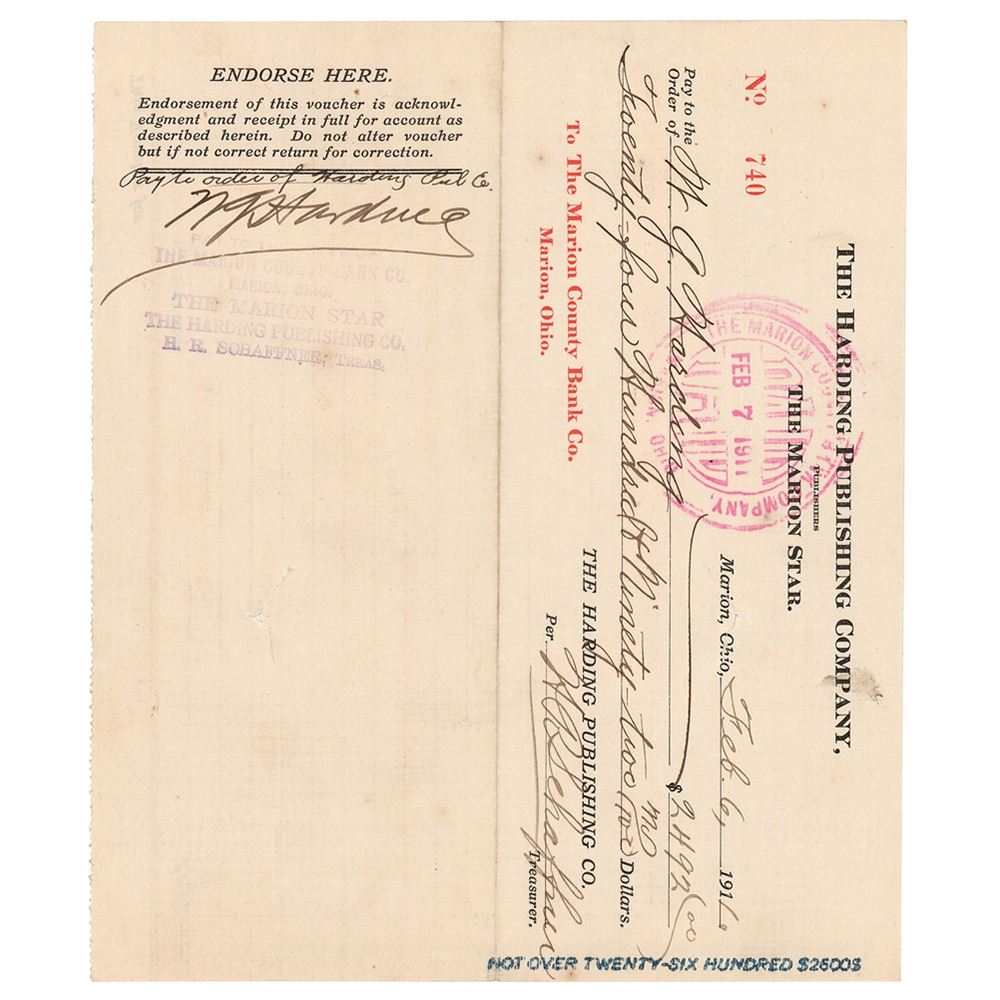 ENDORSE HERE.
Endorsement of this voucher is acknowl-
edgment and receipt in full for account as
described herein. Do not alter voucher
but if not correct return for correction.
Pay to order of Harding Pub Co.
W G Harding
THE MARION COUNTY BANK CO.
MARION, OHIO.
THE MARION STAR
THE HARDING PUBLISHING CO.
H. R. SCHAFFNER, TREAS.
THE HARDING PUBLISHING COMPANY,
PUBLISHERS
THE MARION STAR.
No 740
Marion, Ohio, Feb. 6, 1911.
THE MARION COUNTY BANK COMPANY,
FEB 7 1911
MARION, OHIO
Pay to the
Order of W. G. Harding $2492 00
Twenty-four Hundred & Ninety-two no/100 Dollars.
To The Marion County Bank Co.
Marion, Ohio.
THE HARDING PUBLISHING CO.
Per H R Schaffner
Treasurer.
NOT OVER TWENTY-SIX HUNDRED $2600$